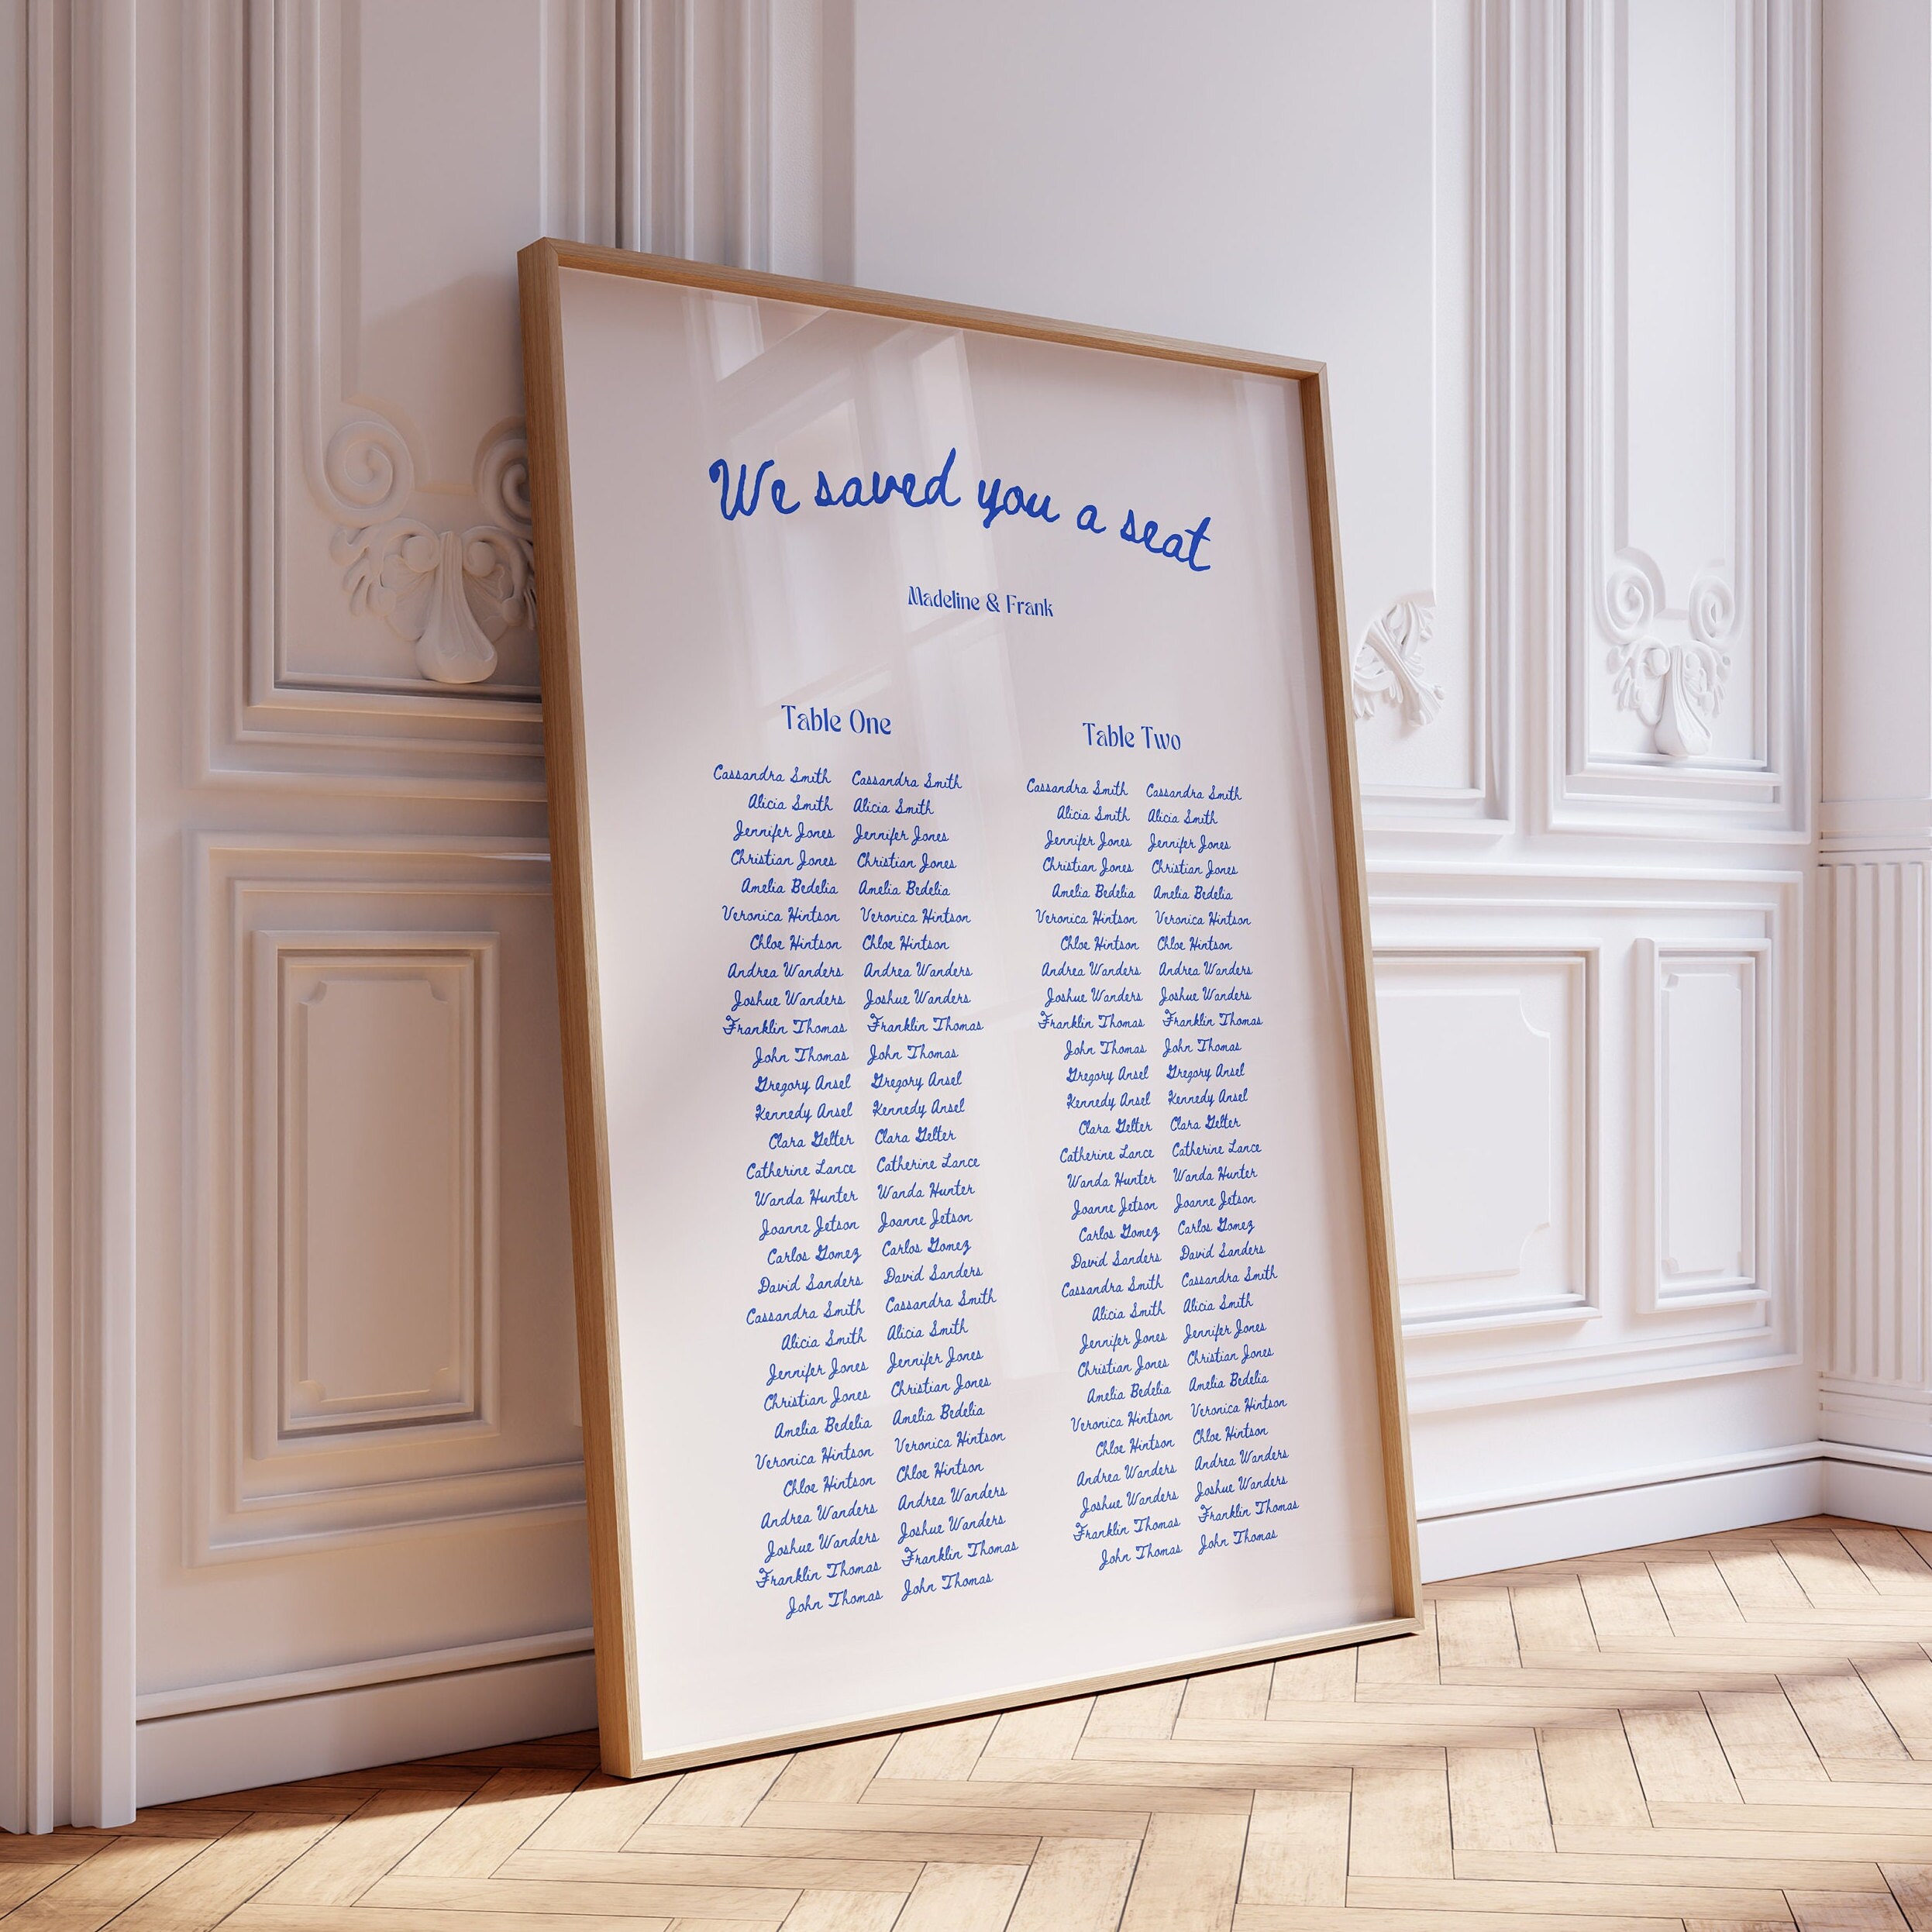 We saved you a seat
Madeline & Frank
Table One
Cassandra Smith Cassandra Smith
Alicia Smith Alicia Smith
Jennifer Jones Jennifer Jones
Christian Jones Christian Jones
Amelia Bedelia Amelia Bedelia
Veronica Hintson Veronica Hintson
Chloe Hintson Chloe Hintson
Andrea Wanders Andrea Wanders
Joshue Wanders Joshue Wanders
Franklin Thomas Franklin Thomas
John Thomas John Thomas
Gregory Ansel Gregory Ansel
Kennedy Ansel Kennedy Ansel
Clara Gelter Clara Gelter
Catherine Lance Catherine Lance
Wanda Hunter Wanda Hunter
Joanne Jetson Joanne Jetson
Carlos Gomez Carlos Gomez
David Sanders David Sanders
Cassandra Smith Cassandra Smith
Alicia Smith Alicia Smith
Jennifer Jones Jennifer Jones
Christian Jones Christian Jones
Amelia Bedelia Amelia Bedelia
Veronica Hintson Veronica Hintson
Chloe Hintson Chloe Hintson
Andrea Wanders Andrea Wanders
Joshue Wanders Joshue Wanders
Franklin Thomas Franklin Thomas
John Thomas John Thomas
Table Two
Cassandra Smith Cassandra Smith
Alicia Smith Alicia Smith
Jennifer Jones Jennifer Jones
Christian Jones Christian Jones
Amelia Bedelia Amelia Bedelia
Veronica Hintson Veronica Hintson
Chloe Hintson Chloe Hintson
Andrea Wanders Andrea Wanders
Joshue Wanders Joshue Wanders
Franklin Thomas Franklin Thomas
John Thomas John Thomas
Gregory Ansel Gregory Ansel
Kennedy Ansel Kennedy Ansel
Clara Gelter Clara Gelter
Catherine Lance Catherine Lance
Wanda Hunter Wanda Hunter
Joanne Jetson Joanne Jetson
Carlos Gomez Carlos Gomez
David Sanders David Sanders
Cassandra Smith Cassandra Smith
Alicia Smith Alicia Smith
Jennifer Jones Jennifer Jones
Christian Jones Christian Jones
Amelia Bedelia Amelia Bedelia
Veronica Hintson Veronica Hintson
Chloe Hintson Chloe Hintson
Andrea Wanders Andrea Wanders
Joshue Wanders Joshue Wanders
Franklin Thomas Franklin Thomas
John Thomas John Thomas